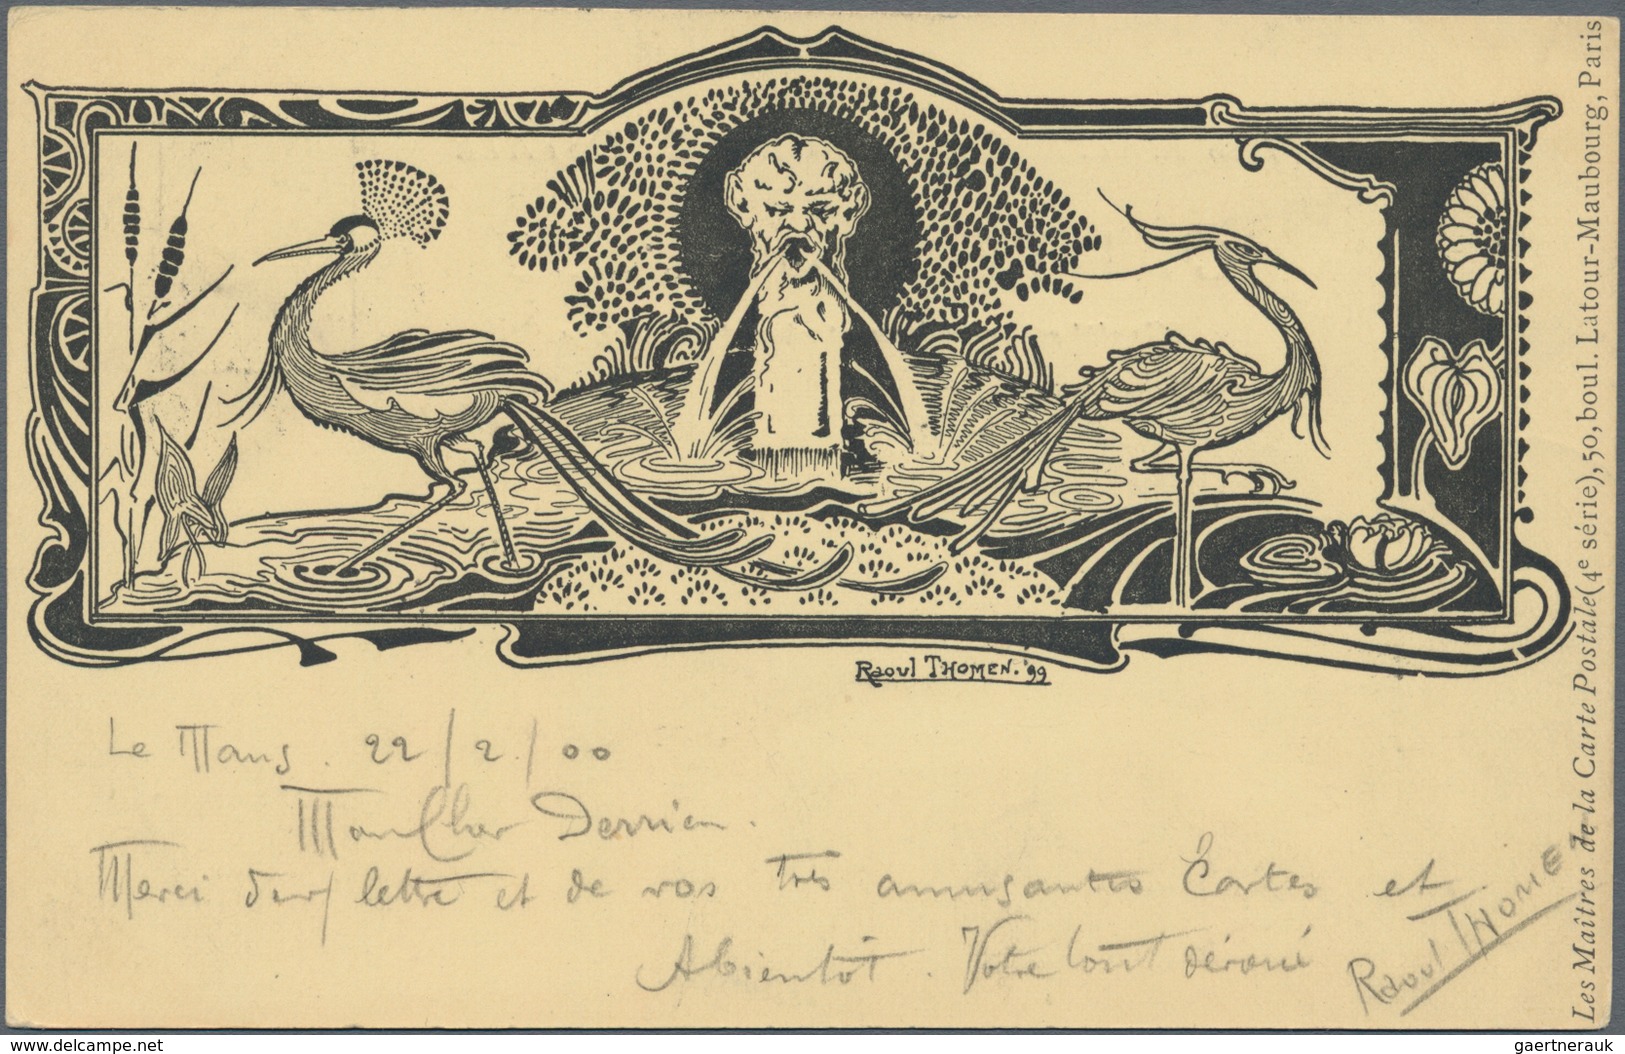 Raoul THOMEN. '99
Les Maîtres de la Carte Postale (4e série), 50, boul. Latour-Maubourg, Paris
Le Mans. 22/2/00
Mon Cher Derrien.
Merci de lettre et de vos très amusantes Cartes et
A bientôt. Votre tout dévoué
Raoul THOMEN
www.delcampe.net
gaertnerauk